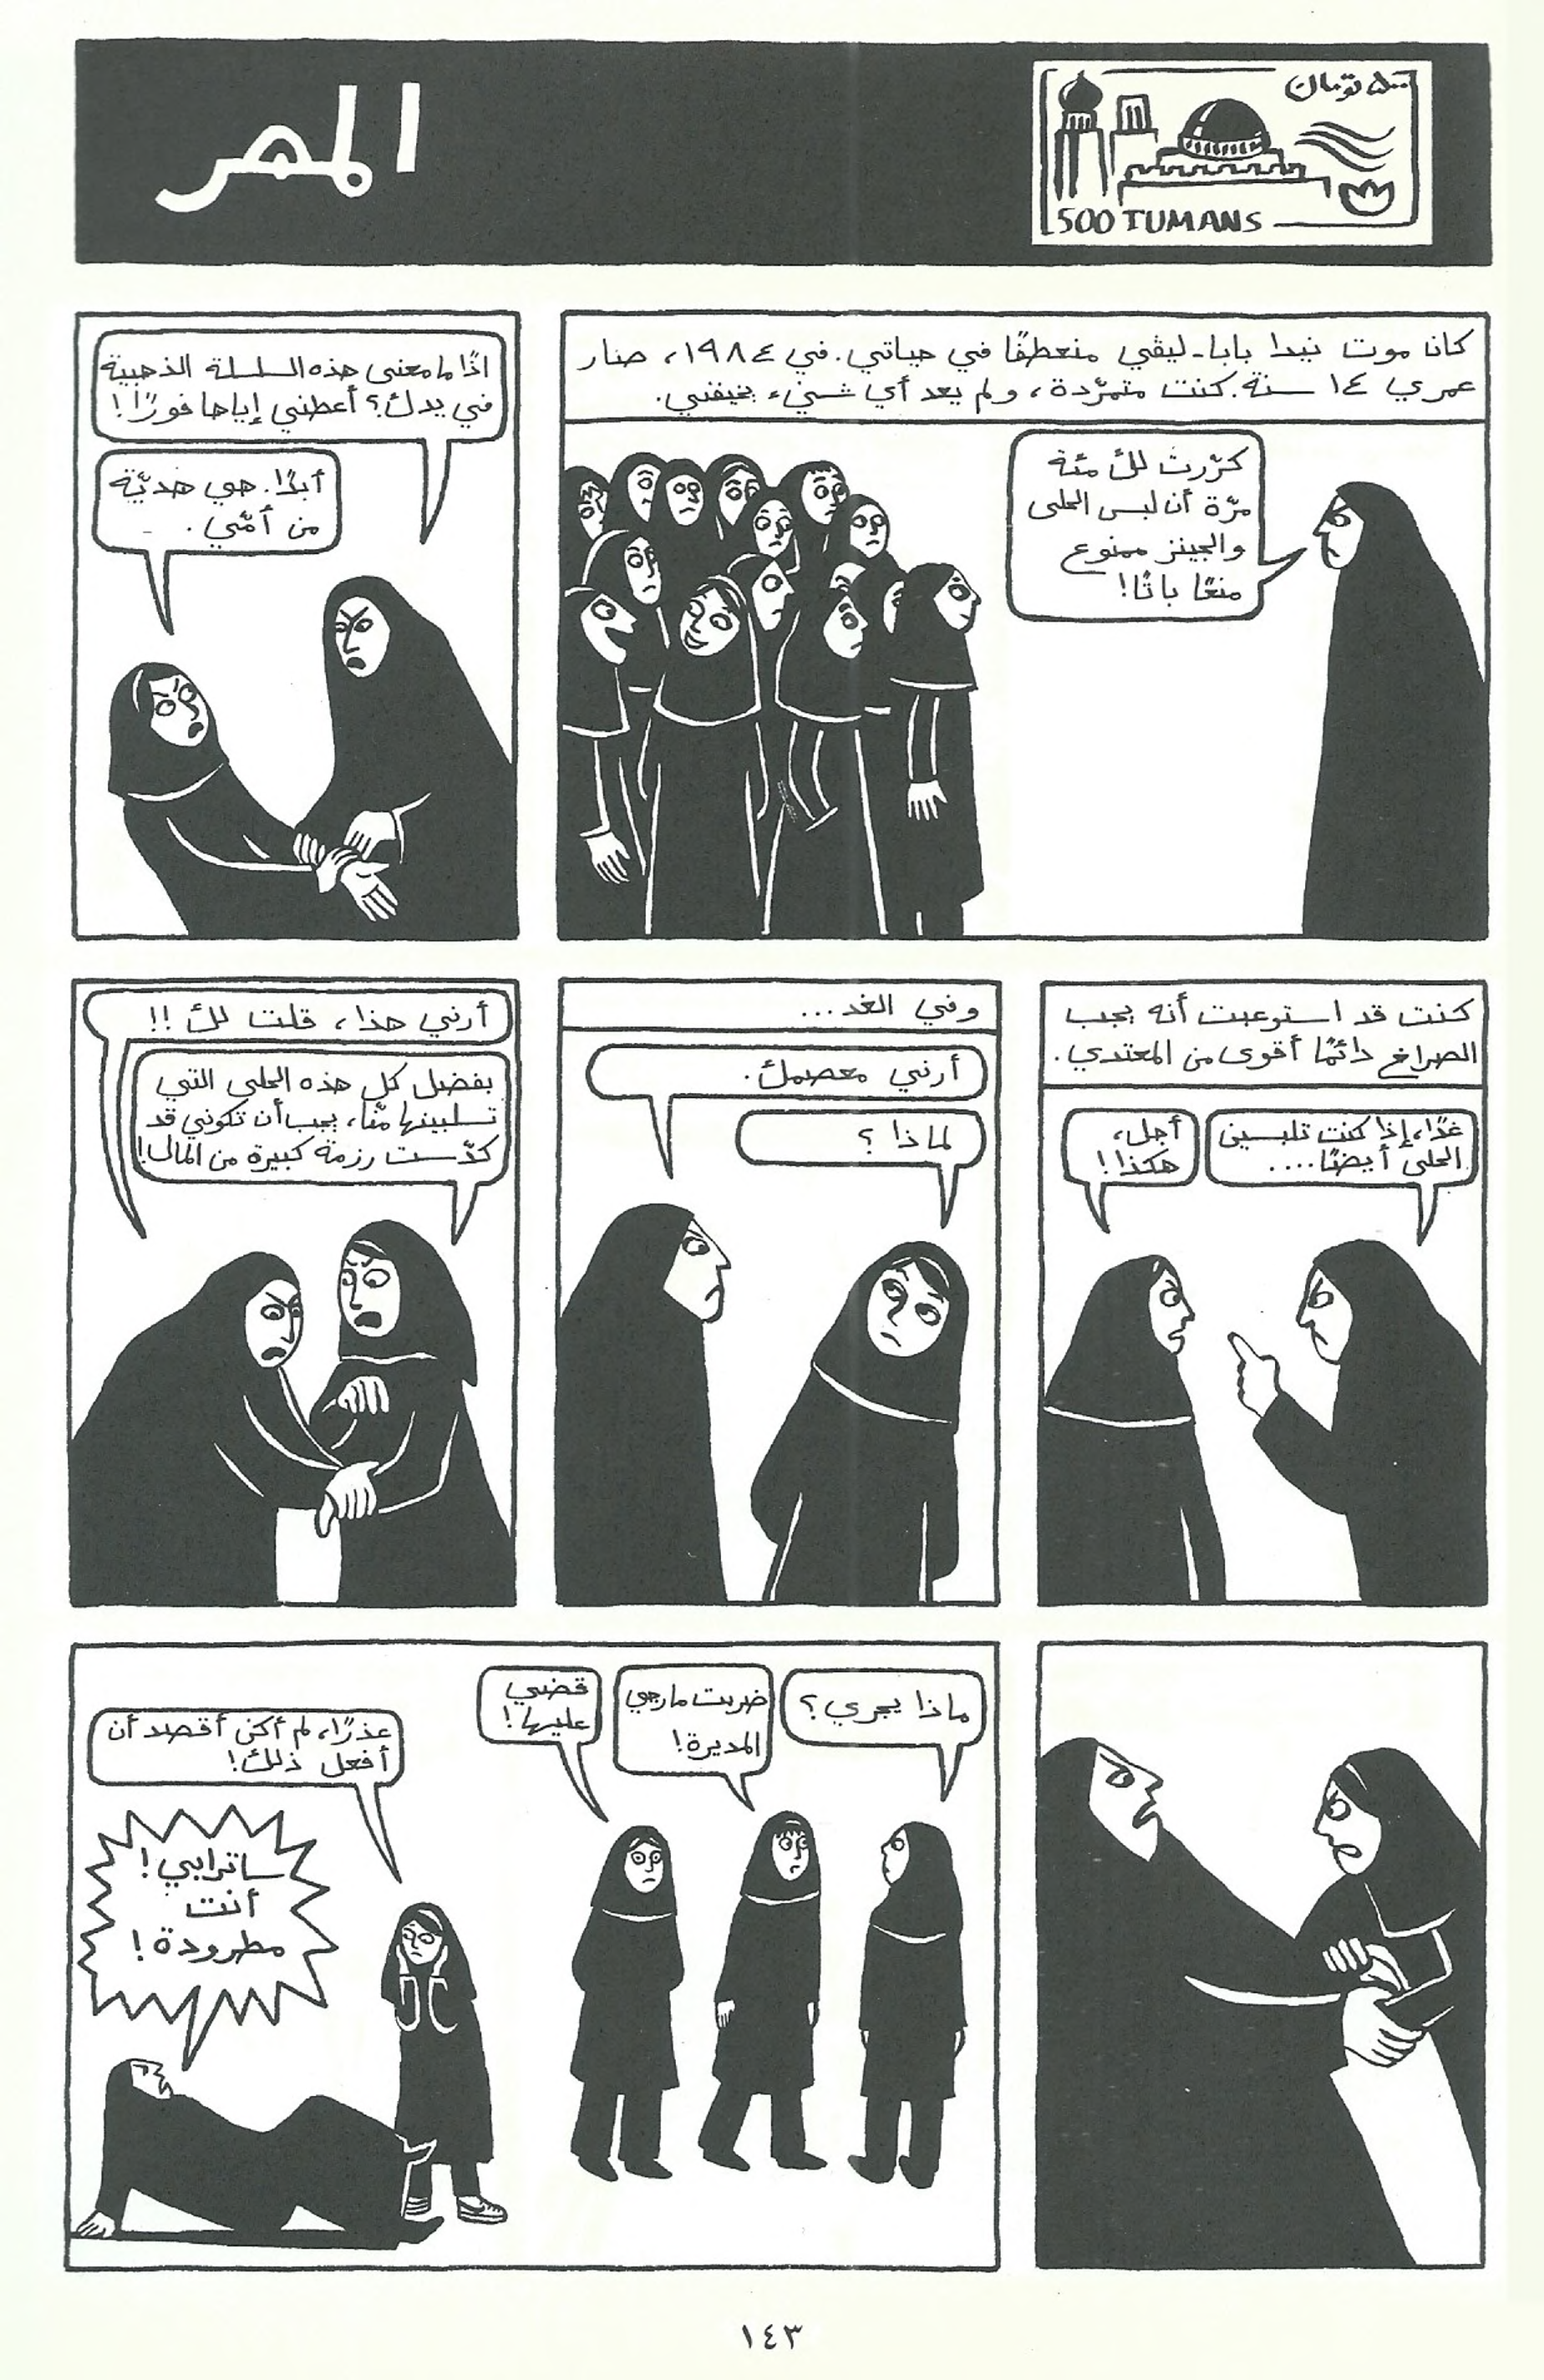 المهر
٥٠٠ تومان
500 TUMANS
كانا موت نيدا بابا-ليڤي منعطفًا في حياتي. في ١٩٨٤، صار
عمري ١٤ سنة. كنت متمرّدة، ولم يعد أي شيء يخيفني.
كرّرت لك مئة
مرّة أن لبس الحلى
والجينز ممنوع
منعًا باتًا!
اذًا ما معنى هذه السلسلة الذهبية
في يدك؟ أعطني إياها فورًا!
أبدًا. هي هديّة
من أمّي.
كنت قد استوعبت أنه يجب
الصراخ دائمًا أقوى من المعتدي.
غدًا، إذا كنت تلبسين
الحلى أيضًا....
أجل،
هكذا!
وفي الغد...
أرني معصمك.
لماذا؟
أرني هذا، قلت لك!!
بفضل كل هذه الحلى التي
تسلبينها منّا، يجب أن تكوني قد
كدّست رزمة كبيرة من المال!
ماذا يجري؟
ضربت مارجي
المديرة!
قضي
عليها!
عذرًا، لم أكن أقصد أن
أفعل ذلك!
ساترابي!
أنت
مطرودة!
١٤٣